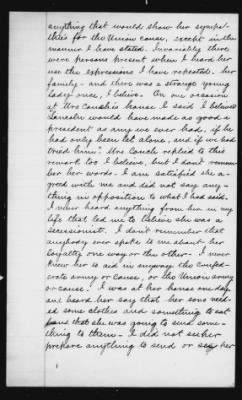 anything that would show her sympa-
thies for the Union cause, except in the
manner I have stated. Invariably there
were persons present when I heard her
use the expressions I have repeated. her
family - and there was a strange young
lady once, I believe. On one occasion
at Mrs house I said I believed
Lincoln would have made as good a
president as any we ever had, if he
had only been let alone, and if we had
tried him. Mrs replied to this
remark too I believe, but I don't remem-
ber her words. I am satisfied she a-
greed with me and did not say any-
thing in opposition to what I had said.
I never heard anything from her in my
life that led me to believe she was a
secessionist. I don't remember that
anybody ever spoke to me about her
loyalty one way or the other - I never
knew her to aid in anyway the confed-
erate army or cause, or the Union army
or cause. I was at her house one day
and heard her say that her sons need-
ed some clothes and something to eat
and that she was going to send some-
thing to them - I did not see her
prepare anything to send or see her